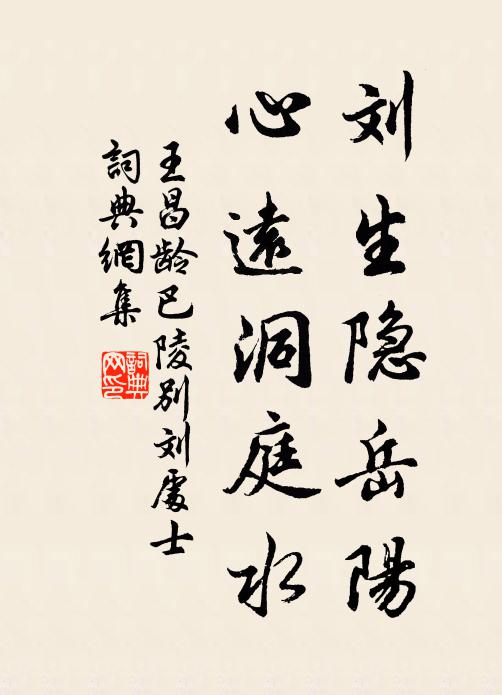 刘生隐岳陽
心遠洞庭水
王昌龄巴陵别刘處士
詞典網集
詞典
网印